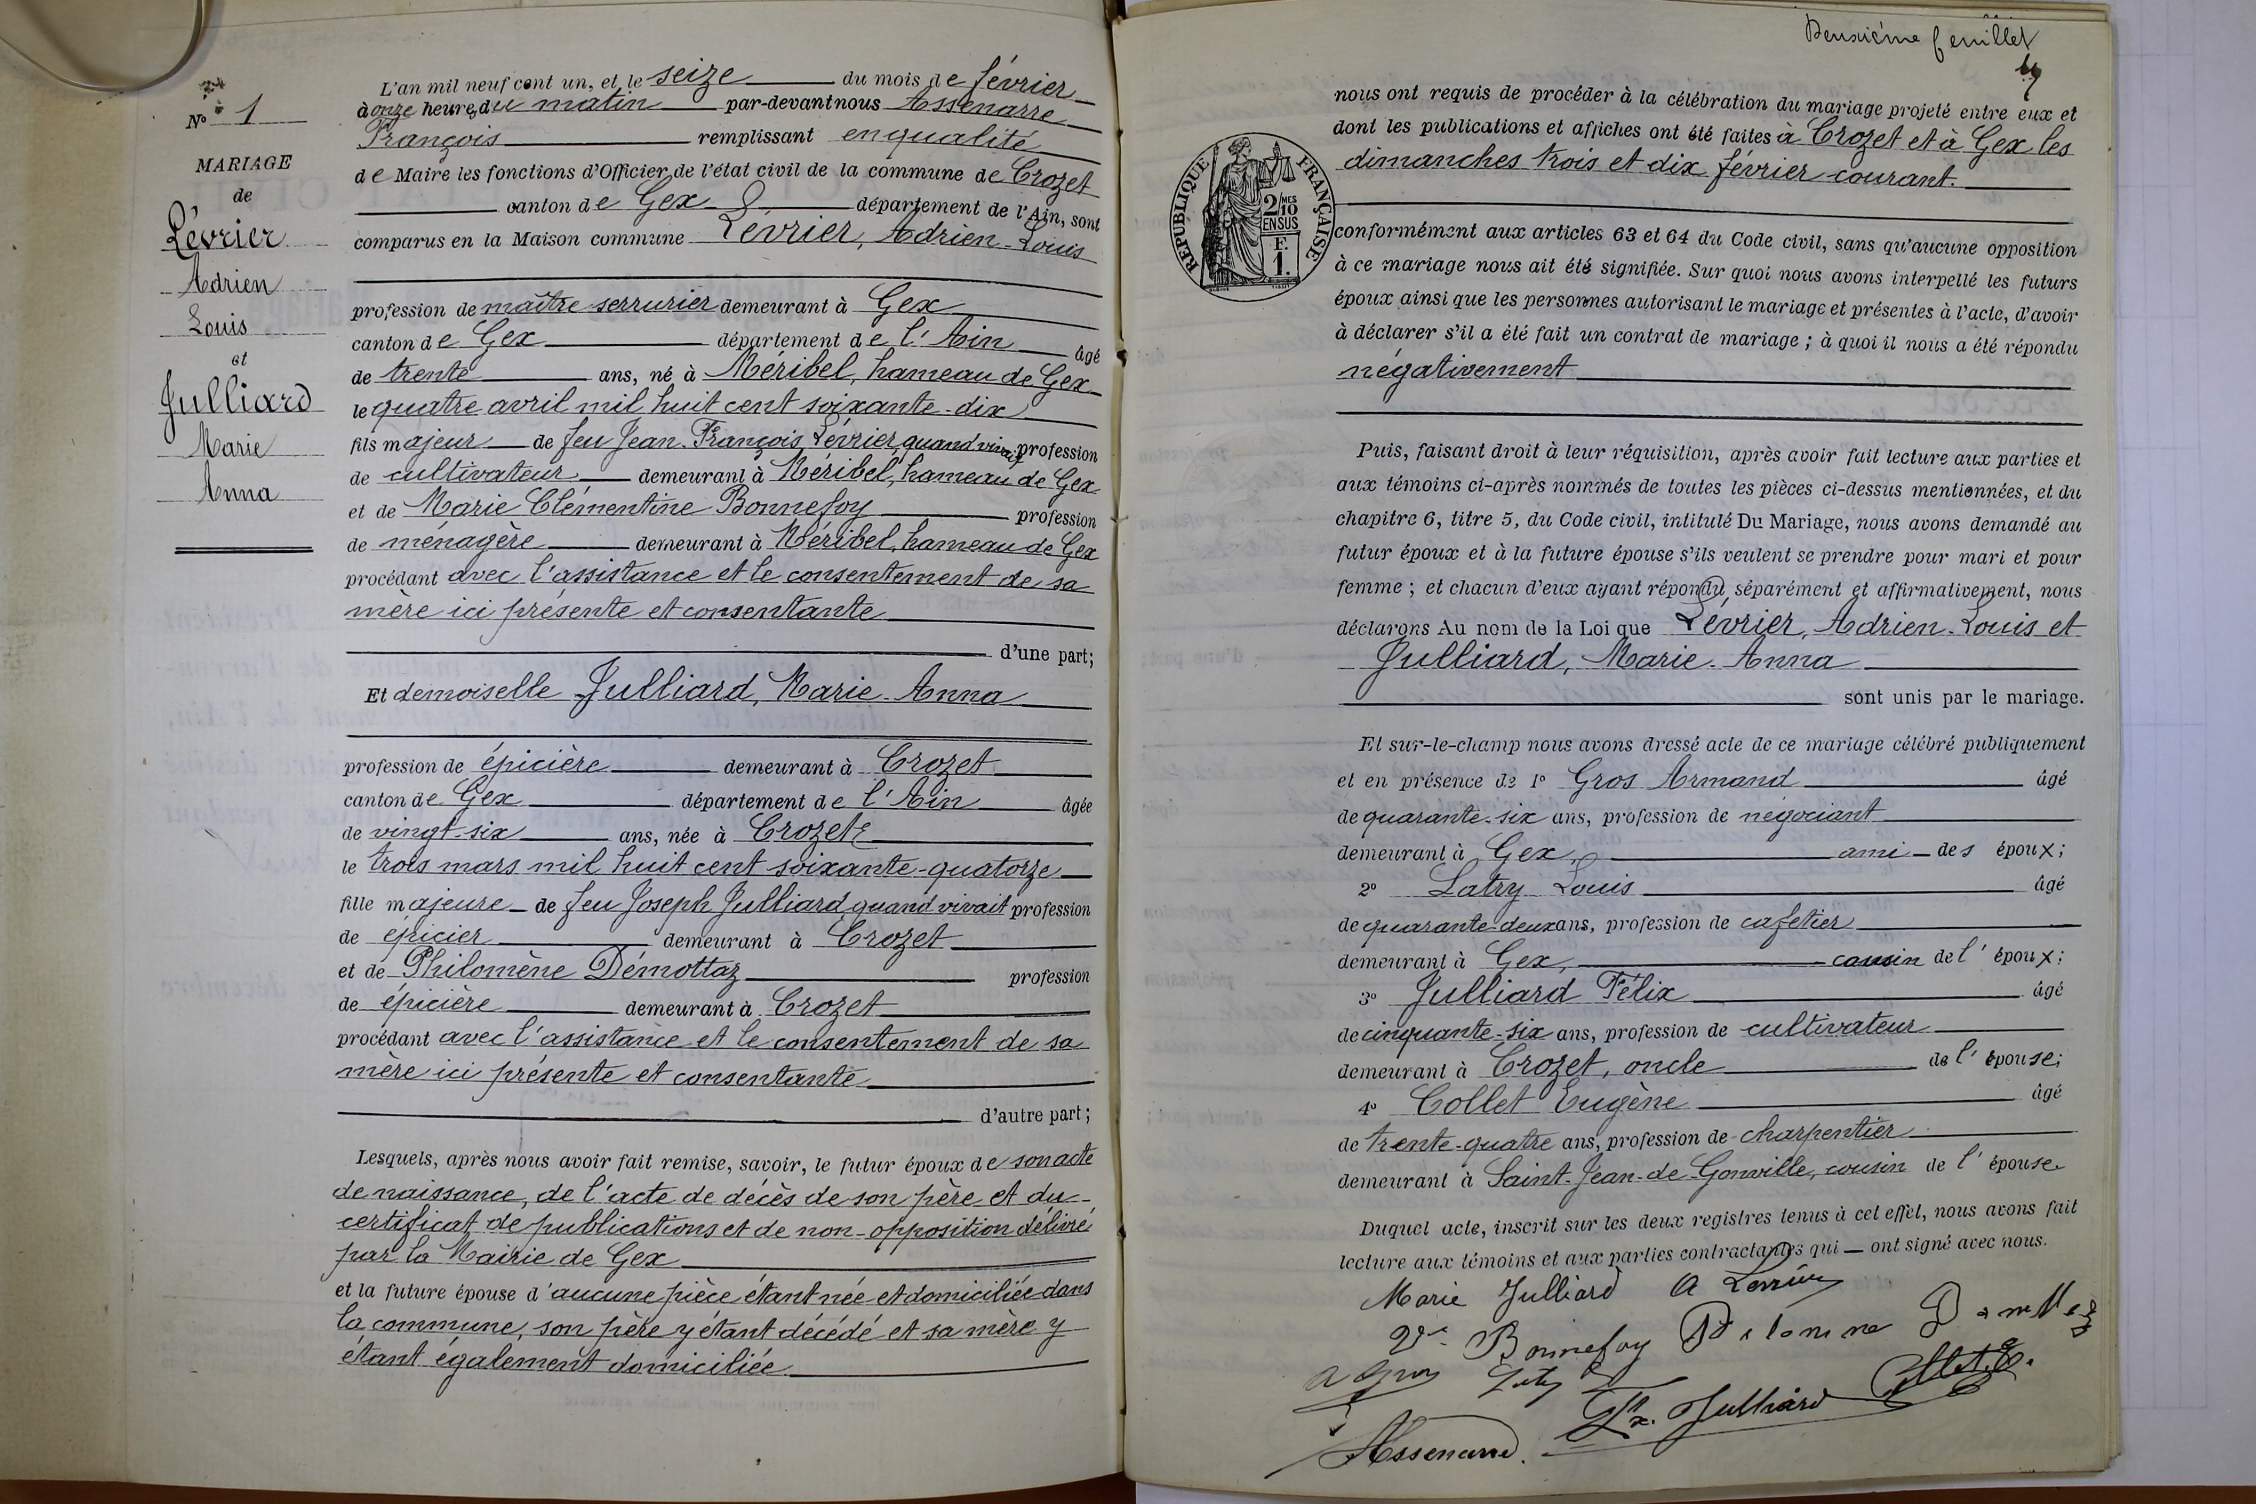 N° 1
MARIAGE
de
Lévrier
Adrien
Louis
et
Julliard
Marie
Anna
L'an mil neuf cent un, et le seize du mois de février
à onze heures du matin par-devant nous Assenarre
François remplissant en qualité
de Maire les fonctions d'Officier de l'état civil de la commune de Crozet
canton de Gex département de l'Ain, sont
comparus en la Maison commune Lévrier, Adrien-Louis
profession de maître serrurier demeurant à Gex
canton de Gex département de l'Ain âgé
de trente ans, né à Méribel, hameau de Gex
le quatre avril mil huit cent soixante-dix
fils majeur de feu Jean-François Lévrier, quand vivait profession
de cultivateur demeurant à Méribel, hameau de Gex
et de Marie Clémentine Bonnefoy profession
de ménagère demeurant à Méribel, hameau de Gex
procédant avec l'assistance et le consentement de sa
mère ici présente et consentante
d'une part;
Et demoiselle Julliard, Marie-Anna
profession de épicière demeurant à Crozet
canton de Gex département de l'Ain âgée
de vingt-six ans, née à Crozet
le trois mars mil huit cent soixante-quatorze
fille majeure de feu Joseph Julliard, quand vivait profession
de épicier demeurant à Crozet
et de Philomène Démottaz profession
de épicière demeurant à Crozet
procédant avec l'assistance et le consentement de sa
mère ici présente et consentante
d'autre part;
Lesquels, après nous avoir fait remise, savoir, le futur époux de son acte
de naissance, de l'acte de décès de son père et du
certificat de publications et de non-opposition délivré
par la Mairie de Gex
et la future épouse d'aucune pièce étant née et domiciliée dans
la commune, son père y étant décédé et sa mère y
étant également domiciliée
Deuxième feuillet
RÉPUBLIQUE FRANÇAISE
2/10 MES
EN SUS
F.
1.
nous ont requis de procéder à la célébration du mariage projeté entre eux et
dont les publications et affiches ont été faites à Crozet et à Gex les
dimanches trois et dix février courant.
conformément aux articles 63 et 64 du Code civil, sans qu'aucune opposition
à ce mariage nous ait été signifiée. Sur quoi nous avons interpellé les futurs
époux ainsi que les personnes autorisant le mariage et présentes à l'acte, d'avoir
à déclarer s'il a été fait un contrat de mariage ; à quoi il nous a été répondu
négativement
Puis, faisant droit à leur réquisition, après avoir fait lecture aux parties et
aux témoins ci-après nommés de toutes les pièces ci-dessus mentionnées, et du
chapitre 6, titre 5, du Code civil, intitulé Du Mariage, nous avons demandé au
futur époux et à la future épouse s'ils veulent se prendre pour mari et pour
femme ; et chacun d'eux ayant répondu, séparément et affirmativement, nous
déclarons Au nom de la Loi que Lévrier, Adrien-Louis et
Julliard, Marie-Anna
sont unis par le mariage.
Et sur-le-champ nous avons dressé acte de ce mariage célébré publiquement
et en présence de 1° Gros Armand âgé
de quarante-six ans, profession de négociant
demeurant à Gex, ami des époux;
2° Latry Louis âgé
de quarante-deux ans, profession de cafetier
demeurant à Gex, cousin de l'époux;
3° Julliard Félix âgé
de cinquante-six ans, profession de cultivateur
demeurant à Crozet, oncle de l'épouse;
4° Collet Eugène âgé
de trente-quatre ans, profession de charpentier
demeurant à Saint-Jean-de-Gonville, cousin de l'épouse
Duquel acte, inscrit sur les deux registres tenus à cet effet, nous avons fait
lecture aux témoins et aux parties contractantes qui ont signé avec nous.
Marie Julliard A Levrier
Vve Bonnefoy
A Gros Latry Collet E.
Julliard
Assenarre.